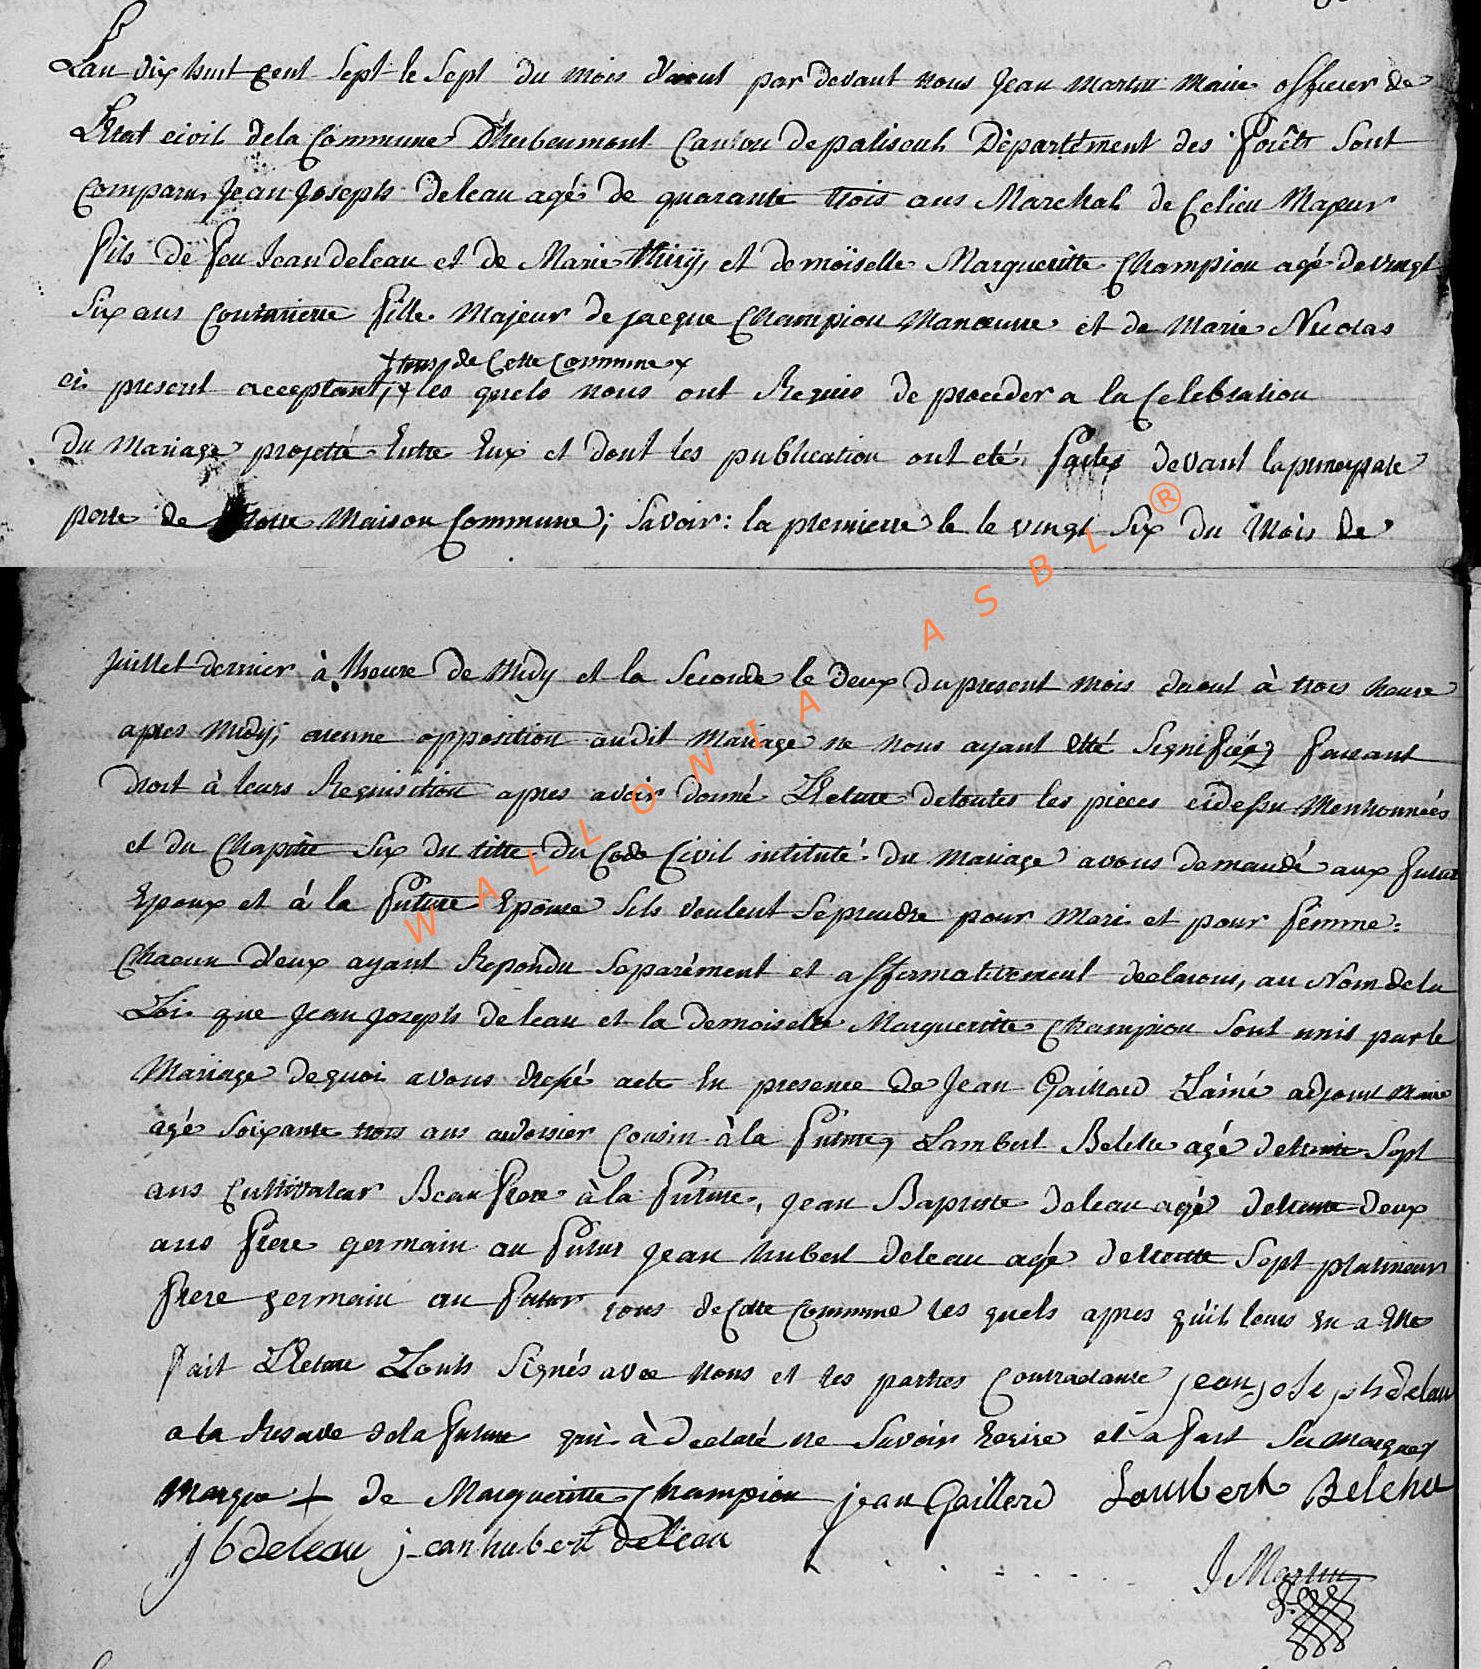 Lan dix huit cent sept le sept du mois d'aout par devant nous Jean Martin Maire officier de
L'Etat civil dela Commune D'herbeumont Canton de paliseul Département des forêts sont
Comparu, Jean Joseph deleau agé de quarante trois ans Marchal de Celieu Majeur
fils de feu Jean deleau et de Marie thiry, et demoiselle Margueritte Champion agé de vingt
Six ans Couturierre fille Majeur de jacque Champion Manœuvre et de Marie Nicolas
+ tous de Cette Commune +
ci present acceptant, + les quels nous ont Requis de proceder a la Celebration
du Mariage projetté Entre Eux et dont les publication ont eté faites devant la principale
porte de Notre Maison Commune ; Savoir : la premierre le le vingt Six du Mois de
Juillet dernier à l'heure de Midy et la Seconde le deux du present mois daout à trois heure
apres Midy ; aucune opposition audit Mariage ne nous ayant Etté Signifiée, faisant
droit à leurs Requisition apres avoir donné Lecture de toutes les pieces cidessu Mentionnées
et du Chapitre Six du titre du Code Civil intitulé du Mariage avons demandé aux futur
Epoux et à la future Epouse Sils veulent Seprendre pour Mari et pour femme :
Chacun d'eux ayant Repondu Separément et affirmativement declarons, au Nom de la
Loi que Jean Joseph deleau et la demoiselle Margueritte Champion Sont unis par le
Mariage dequoi avons dressé acte En presence de Jean Gaillard L'ainé adjoint Maire
agé Soixante trois ans ardoisier Cousin à la future, Lambert Beleche agé de trente Sept
ans Cultivateur Beau frere à la future, Jean Baptiste deleau agé de trente deux
ans frere germain au futur Jean hubert deleau agé de trente Sept platineur
frere germain au futur tous de Cette Commune les quels apres qu'il leurs En a Etté
fait Lecture L'onts Signés avec Nous et les parties Contractante jean joseph deleau
a la Reserve dela future qui à declaré ne Savoir Ecrire et a fait Sa marque
Marque + de Margueritte Champion jean Gaillard Lambert Beleche
j b deleau jean hubert deleau
J Martin
WALLONIA ASBL ®